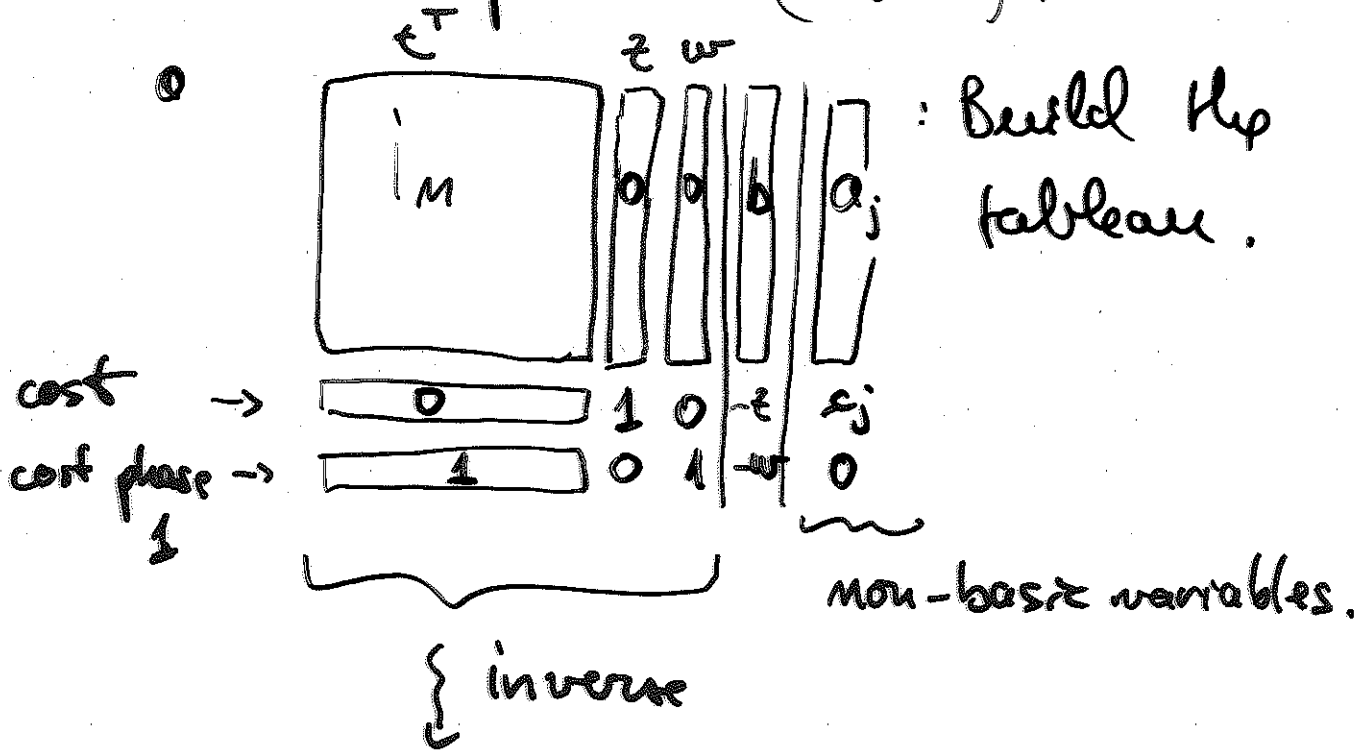 z w
M 0 0 b aj : Build the
tableau.
cost → 0 1 0 -z cj
cost phase → 1 0 1 -w 0
1
non-basic variables.
inverse